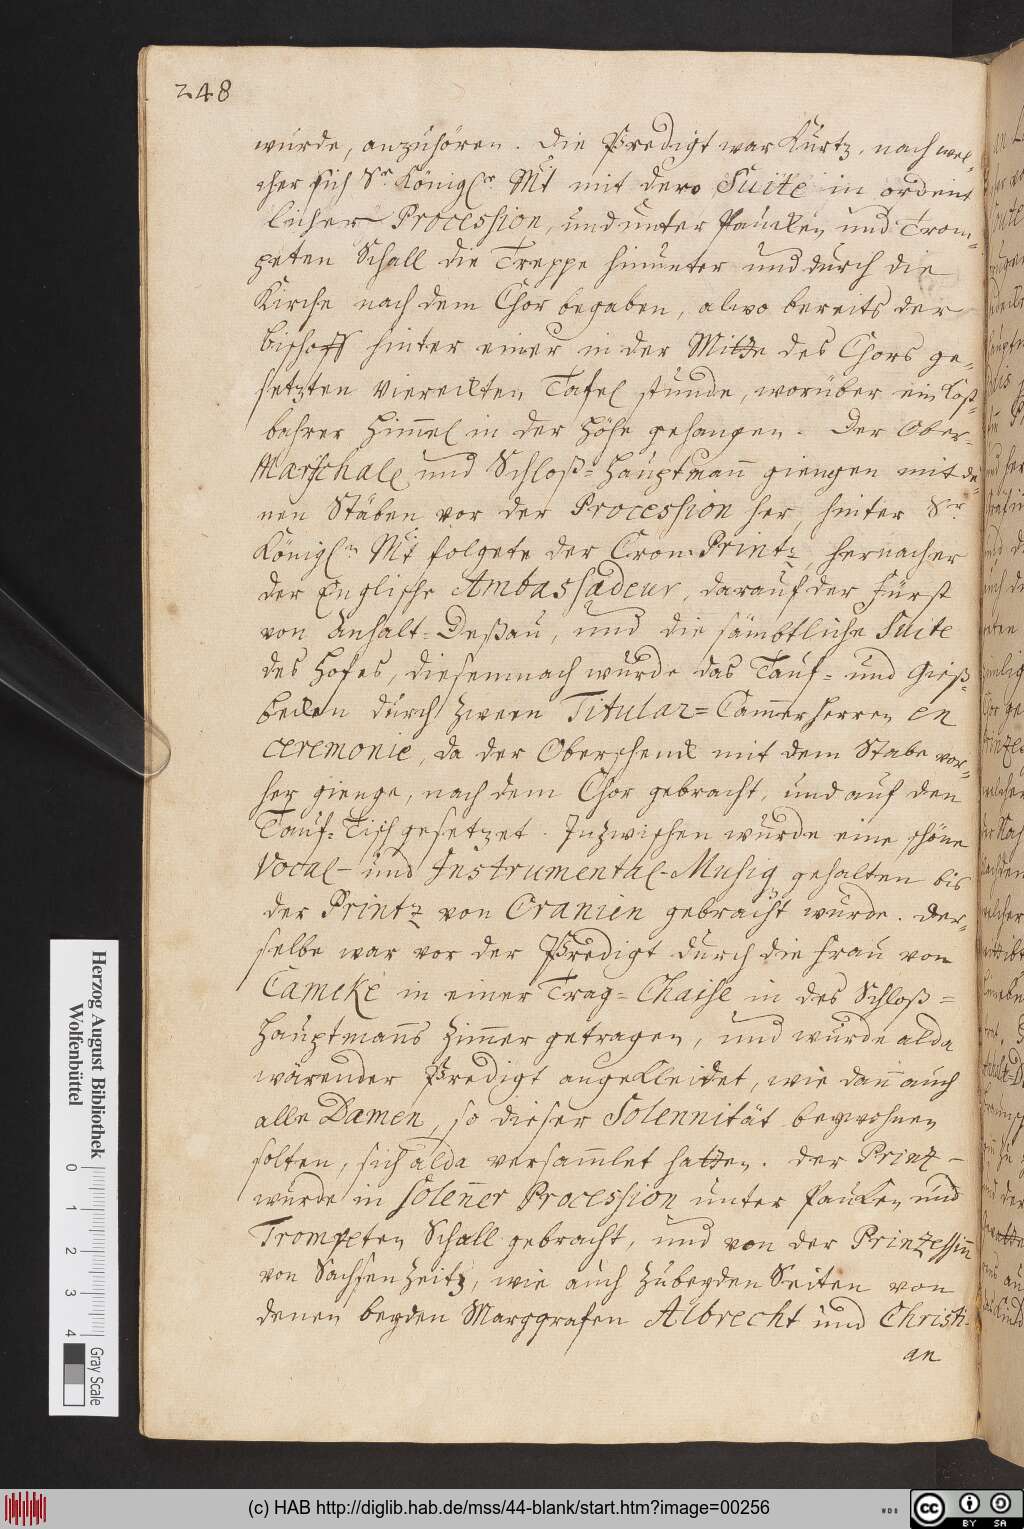 248
würde, anzuhören. Die Predigt war Kurtz, nach wel-
cher sich Sr. Königl.r Mt mit dero Suite in ordent
licher Procession, und unter Paucken und Trom-
peten Schall die Treppe hinunter und durch die
Kirche nach dem Chor begaben, alwo bereits der
Bischoff hinter einer in der Mitte des Chors ge-
setzten viereckten Tafel stunde, worüber ein Kost-
bahrer Himmel in der Höhe gehangen. Der Ober-
Marschall und Schloß-Hauptmann giengen mit de-
nen Stäben vor der Procession her, hinter Sr.
Königl.n Mt folgete der Cron-Printz, hernacher
der Englische Ambassadeur, darauf der Fürst
von Anhalt-Deßau, und die sämbtliche Suite
des Hofes, diesemnach wurde das Tauf- und Gieß-
becken durch zween Titular-Cammerherren en
ceremonie, da der Oberschenck mit dem Stabe vor-
her gienge, nach dem Chor gebracht, und auf den
Tauf-Tisch gesetzet. Inzwischen wurde eine schöne
Vocal- und Instrumental-Musiq gehalten bis
der Printz von Oranien gebracht wurde. Der-
selbe war vor der Predigt durch die Frau von
Cameke in einer Trag-Chaise in des Schloß-
Hauptmanns Zimmer getragen, und wurde alda
wärender Predigt angekleidet, wie dann auch
alle Damen, so dieser Solennität beywohnen
solten, sich alda versammlet hatten. Der Printz
wurde in solenner Procession unter Paucken und
Trompeten Schall gebracht, und von der Printzessinn
von Sachsen Zeitz, wie auch zu beyden Seiten von
denen beyden Marggrafen Albrecht und Christi-
an
Herzog August Bibliothek
Wolfenbüttel
0 1 2 3 4
Gray Scale
(c) HAB http://diglib.hab.de/mss/44-blank/start.htm?image=00256
WDB
cc BY SA